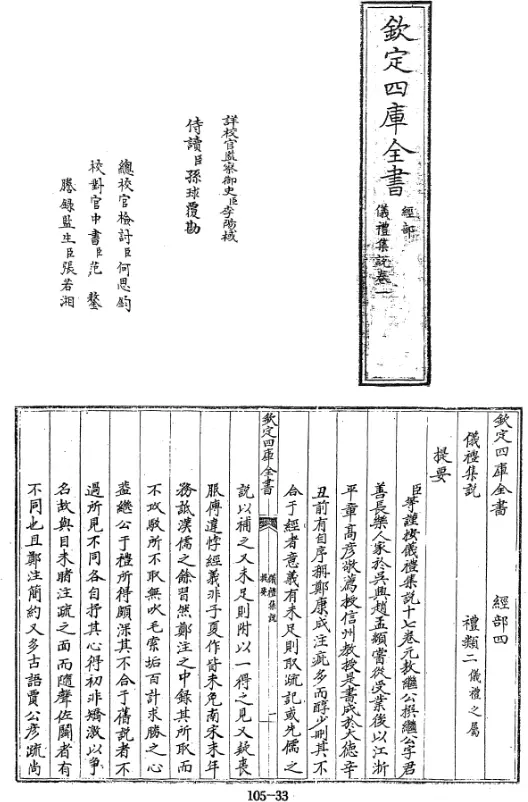 欽定四庫全書
經部
儀禮集說卷一
詳校官監察御史臣李陽棫
侍讀臣孫球覆勘
總校官檢討臣何思鈞
校對官中書臣范鏊
謄錄監生臣張若湘
欽定四庫全書 經部四
儀禮集說 禮類二儀禮之屬
提要
臣等謹按儀禮集說十七卷元敖繼公撰繼公字君
善長樂人家於吳興趙孟頫嘗從受業後以江浙
平章高彥敬薦授信州教授是書成於大德辛
丑前有自序稱鄭康成注疵多而醇少刪其不
合于經者意義有未足則取疏記或先儒之
欽定四庫全書
儀禮集說
提要
一
說以補之又未足則附以一得之見又疑喪
服傳違悖經義非子夏作皆未免南宋末年
務詆漢儒之餘習然鄭注之中錄其所取而
不攻駁所不取無吹毛索垢百計求勝之心
蓋繼公于禮所得頗深其不合于舊說者不
過所見不同各自抒其心得初非矯激以爭
名故與目未睹注疏之面而隨聲佐鬭者有
不同也且鄭注簡約又多古語賈公彥疏尚
105-33